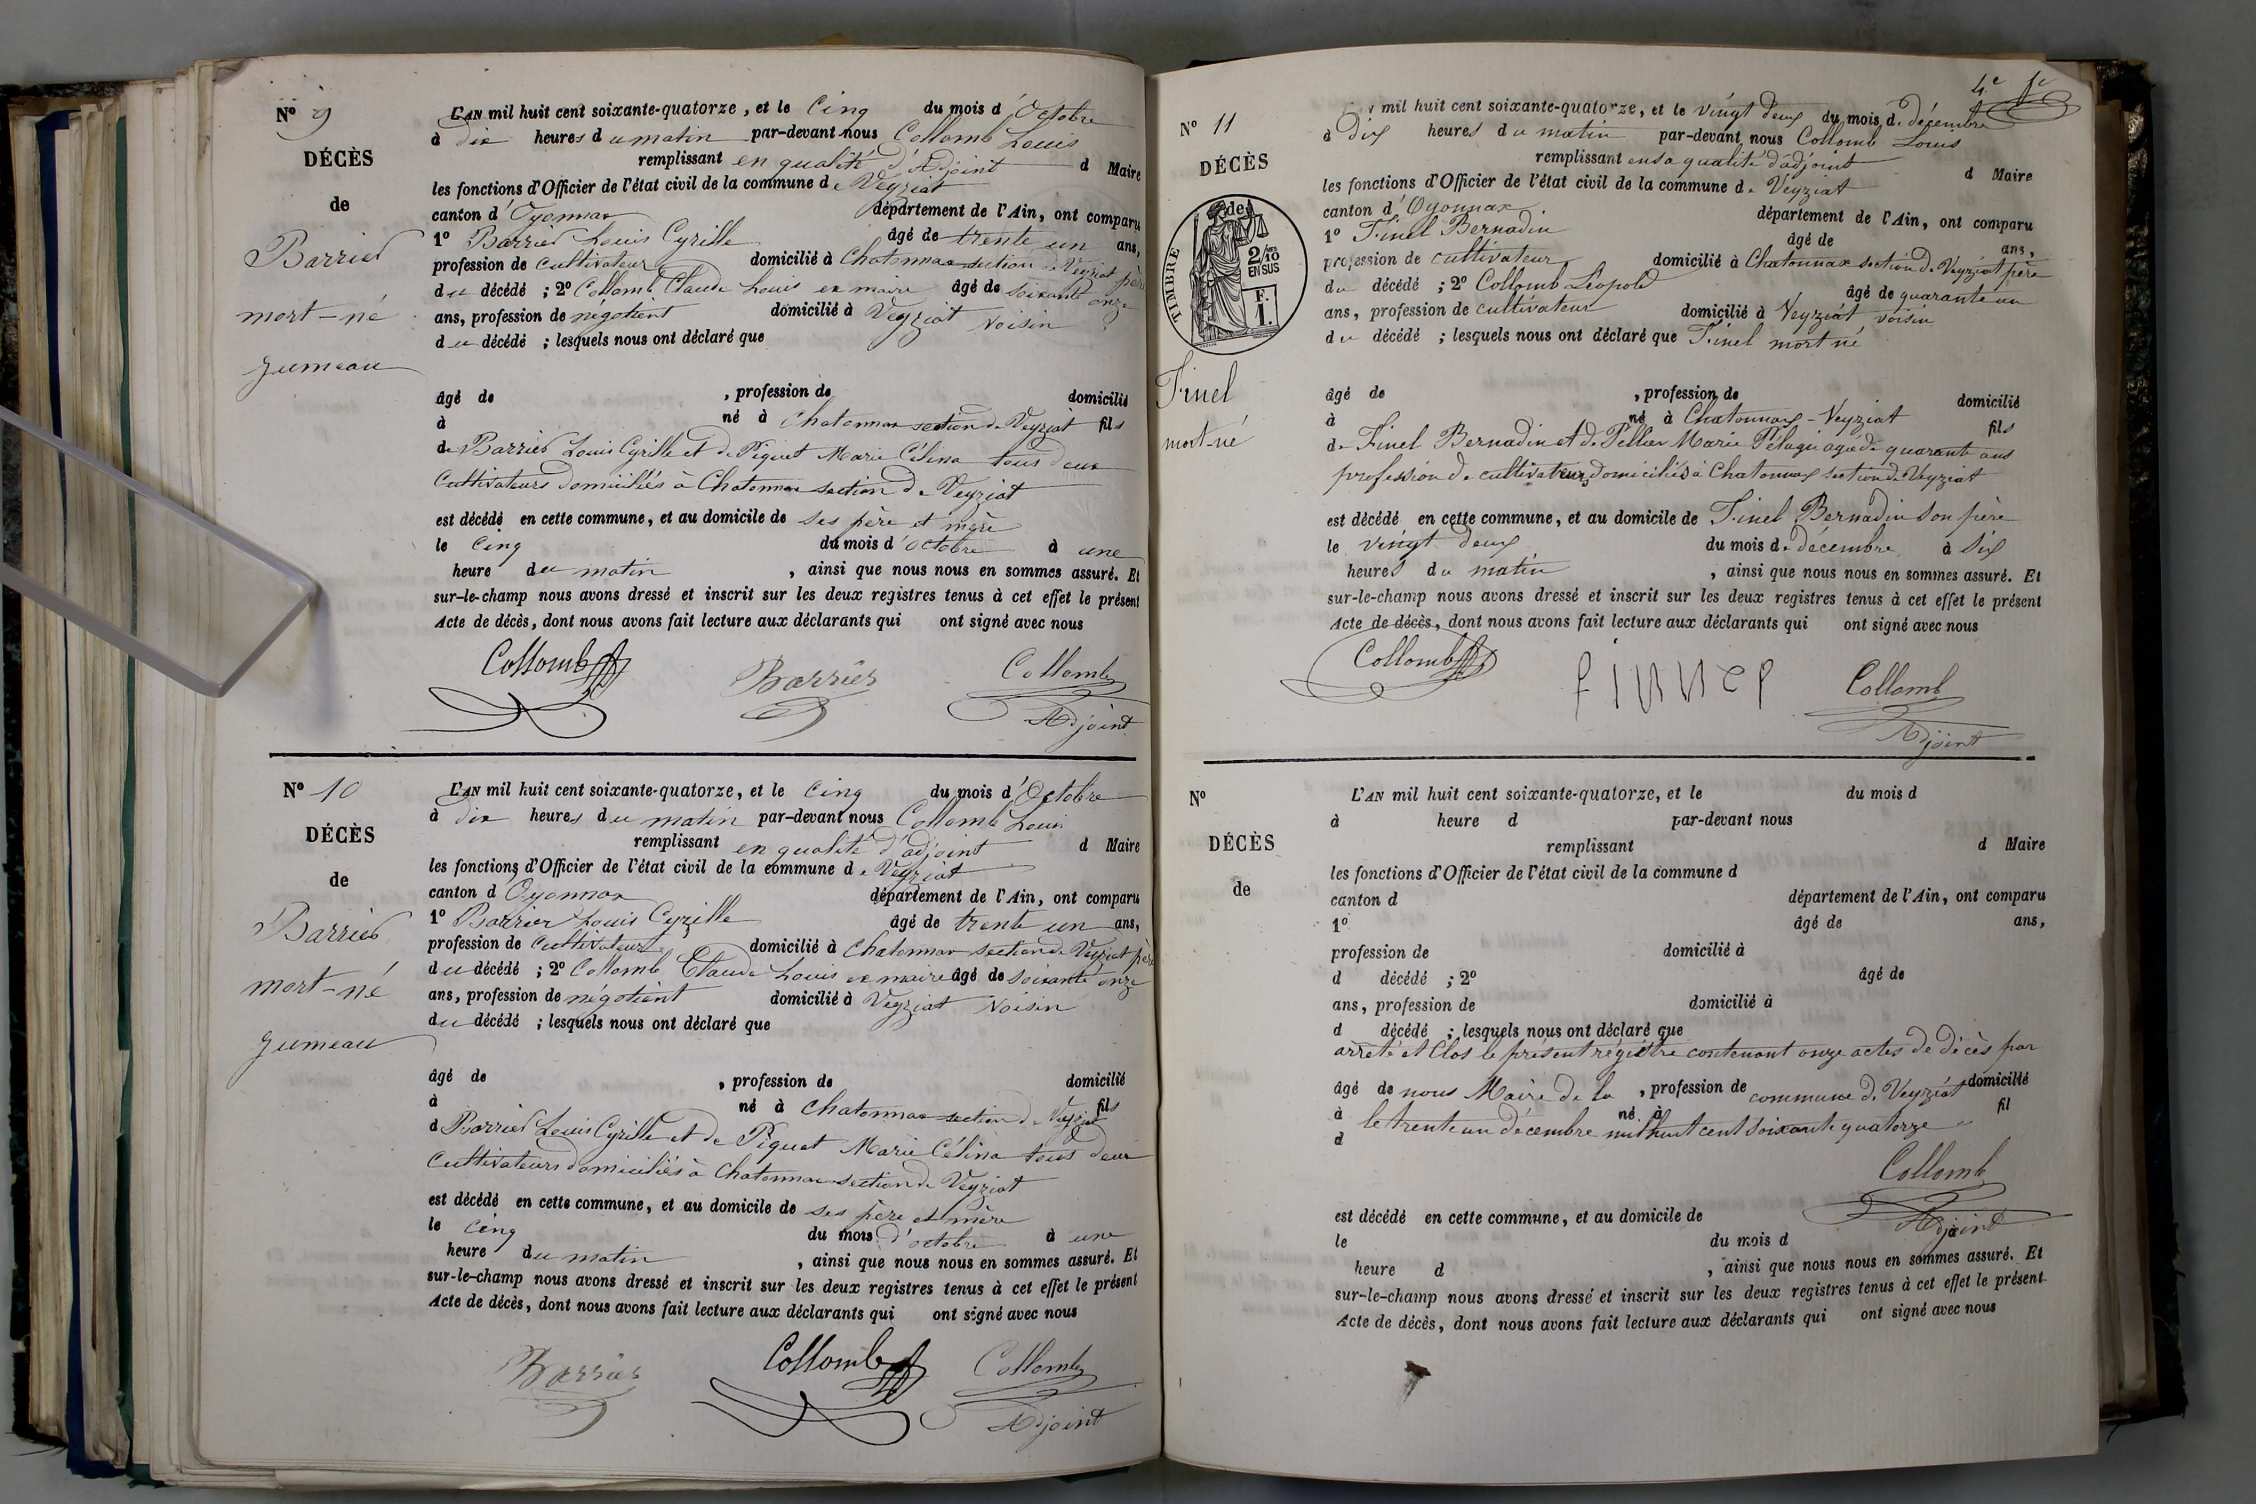 Nº 9
DÉCÈS
de
Barrier
mort-né
jumeau
L'AN mil huit cent soixante-quatorze, et le Cinq du mois d'Octobre
à dix heures du matin par-devant nous Collomb Louis
remplissant en qualité d'Adjoint d Maire
les fonctions d'Officier de l'état civil de la commune de Veyziat
canton d'Oyonnax département de l'Ain, ont comparu
1º Barrier Louis Cyrille âgé de trente un ans,
profession de cultivateur domicilié à Chatonnax section de Veyziat père
du décédé ; 2º Collomb Claude Louis ex maire âgé de soixante onze
ans, profession de négotient domicilié à Veyziat voisin
du décédé ; lesquels nous ont déclaré que
âgé de , profession de domicilié
à né à Chatonnax section de Veyziat fils
de Barrier Louis Cyrille et de Piquet Marie Célina tous deux
Cultivateurs domiciliés à Chatonnax section de Veyziat
est décédé en cette commune, et au domicile de ses père et mère
le Cinq du mois d'octobre à une
heure du matin , ainsi que nous nous en sommes assuré. Et
sur-le-champ nous avons dressé et inscrit sur les deux registres tenus à cet effet le présent
Acte de décès, dont nous avons fait lecture aux déclarants qui ont signé avec nous
Collomb Barrier Collomb
Adjoint
Nº 10
DÉCÈS
de
Barrier
mort-né
jumeau
L'AN mil huit cent soixante-quatorze, et le Cinq du mois d'Octobre
à dix heures du matin par-devant nous Collomb Louis
remplissant en qualité d'adjoint d Maire
les fonctions d'Officier de l'état civil de la commune de Veyziat
canton d Oyonnax département de l'Ain, ont comparu
1º Barrier Louis Cyrille âgé de trente un ans,
profession de Cultivateur domicilié à Chatonnax section de Veyziat père
du décédé ; 2º Collomb Claude Louis ex maire âgé de soixante onze
ans, profession de négotient domicilié à Veyziat voisin
du décédé ; lesquels nous ont déclaré que
âgé de , profession de domicilié
à né à Chatonnax section de Veyziat fils
d Barrier Louis Cyrille et de Piquet Marie Célina tous deux
Cultivateurs domiciliés à Chatonnax section de Veyziat
est décédé en cette commune, et au domicile de ses père et mère
le cinq du mois d'octobre à une
heure du matin , ainsi que nous nous en sommes assuré. Et
sur-le-champ nous avons dressé et inscrit sur les deux registres tenus à cet effet le présent
Acte de décès, dont nous avons fait lecture aux déclarants qui ont signé avec nous
Barrier Collomb Collomb
Adjoint
Nº 11
DÉCÈS
de
TIMBRE
2/10
EN SUS
F.
1.
Finel
mort-né
mil huit cent soixante-quatorze, et le vingt deux du mois de décembre
à dix heures du matin par-devant nous Collomb Louis
remplissant en sa qualité d'adjoint d Maire
les fonctions d'Officier de l'état civil de la commune de Veyziat
canton d'Oyonnax département de l'Ain, ont comparu
1º Finel Bernadin âgé de ans,
profession de cultivateur domicilié à Chatonnax section de Veyziat père
du décédé ; 2º Collomb Léopold âgé de quarante un
ans, profession de cultivateur domicilié à Veyziat voisin
du décédé ; lesquels nous ont déclaré que Finel mort né
âgé de , profession de domicilié
à né à Chatonnax-Veyziat fils
de Finel Bernadin et de Pellier Marie Pélagie agée de quarante ans
profession de cultivateurs domiciliés à Chatonnax section de Veyziat
est décédé en cette commune, et au domicile de Finel Bernadin son père
le vingt deux du mois de décembre à six
heures du matin , ainsi que nous nous en sommes assuré. Et
sur-le-champ nous avons dressé et inscrit sur les deux registres tenus à cet effet le présent
Acte de décès, dont nous avons fait lecture aux déclarants qui ont signé avec nous
Collomb finnel Collomb
Adjoint
Nº
DÉCÈS
de
L'AN mil huit cent soixante-quatorze, et le du mois d
à heure d par-devant nous
remplissant d Maire
les fonctions d'Officier de l'état civil de la commune d
canton d département de l'Ain, ont comparu
1º âgé de ans,
profession de domicilié à
d décédé ; 2º âgé de
ans, profession de domicilié à
d décédé ; lesquels nous ont déclaré que
arrêté et Clos le présent régistre contenant onze actes de décès par
âgé de nous Maire de la , profession de commune de Veyziat domicilié
à le trente un décembre né à mil huit cent soixante quatorze fil
d
Collomb
Adjoint
est décédé en cette commune, et au domicile de
le du mois d à
heure d , ainsi que nous nous en sommes assuré. Et
sur-le-champ nous avons dressé et inscrit sur les deux registres tenus à cet effet le présent
Acte de décès, dont nous avons fait lecture aux déclarants qui ont signé avec nous